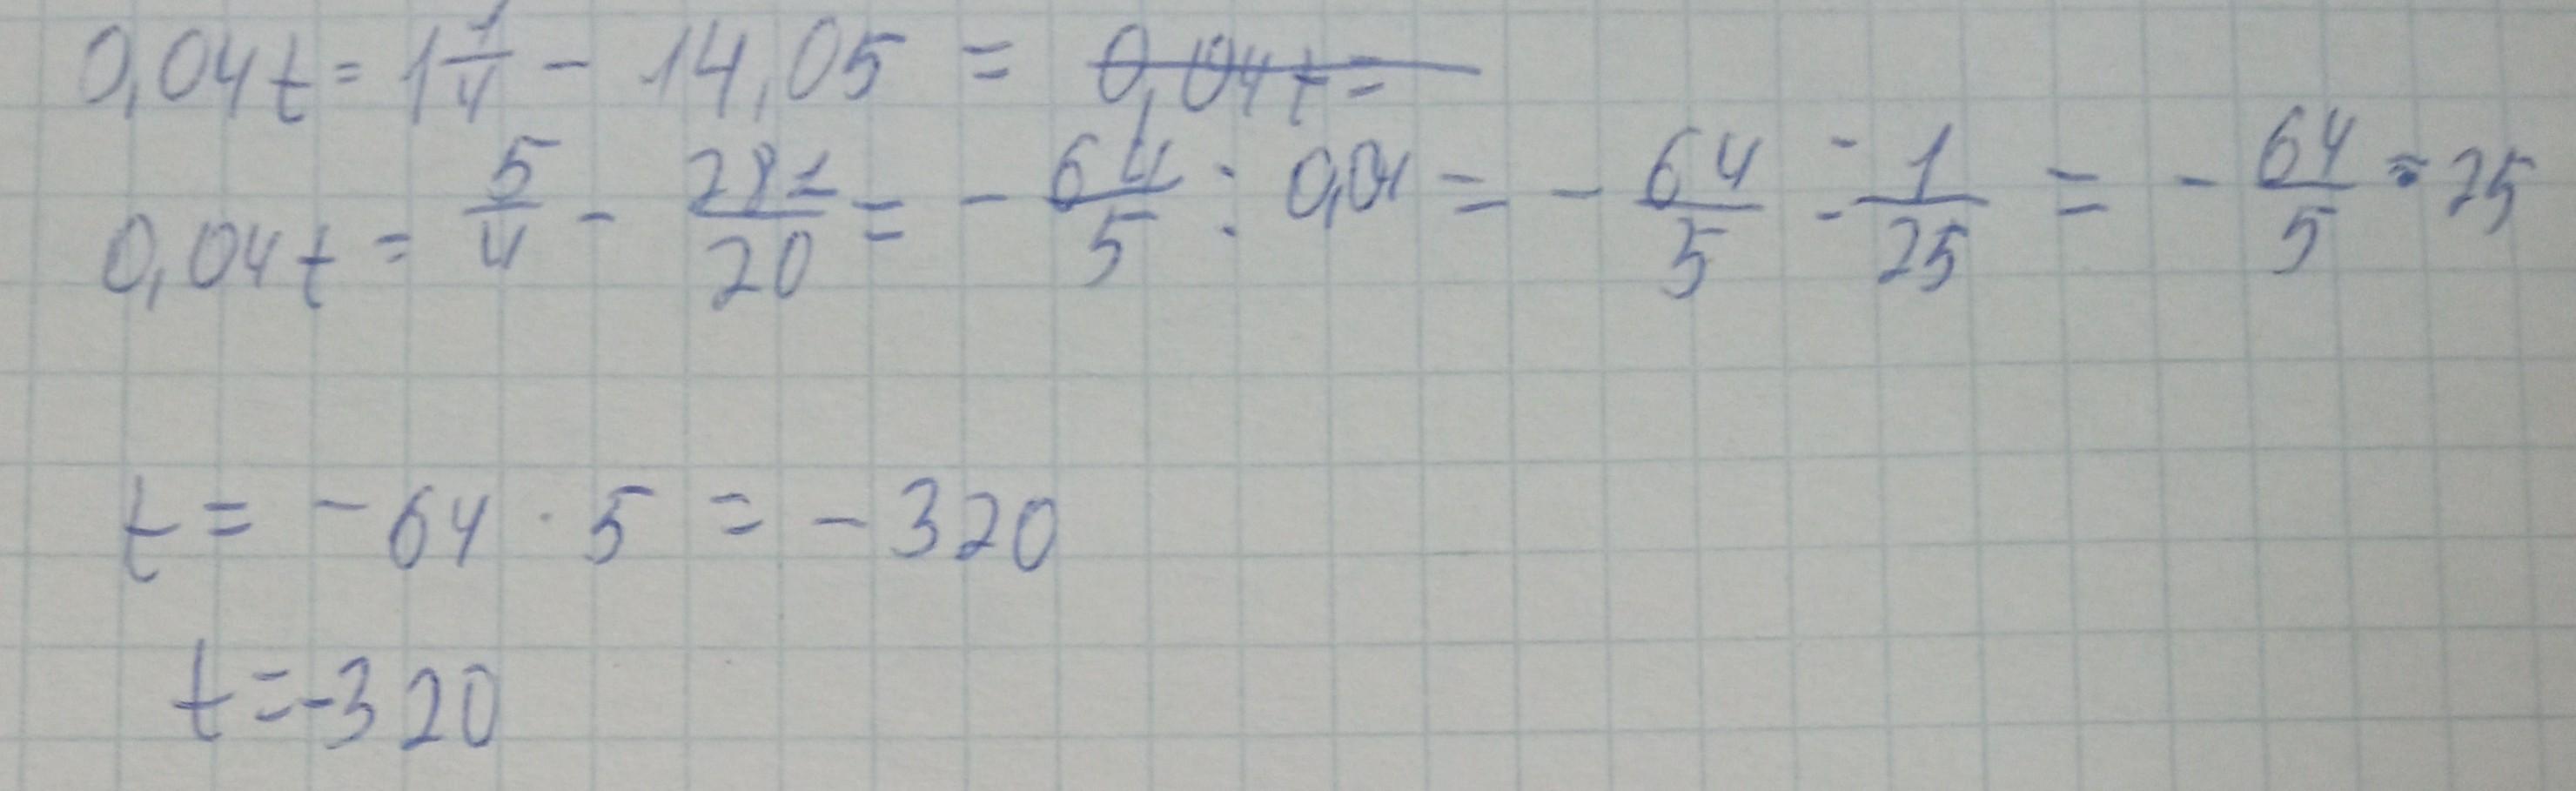 0,04t = 1 1/4 - 14,05 = 0,04t =
0,04t = 5/4 - 281/20 = - 64/5 : 0,04 = - 64/5 : 1/25 = - 64/5 · 25
t = - 64 · 5 = - 320
t = -320